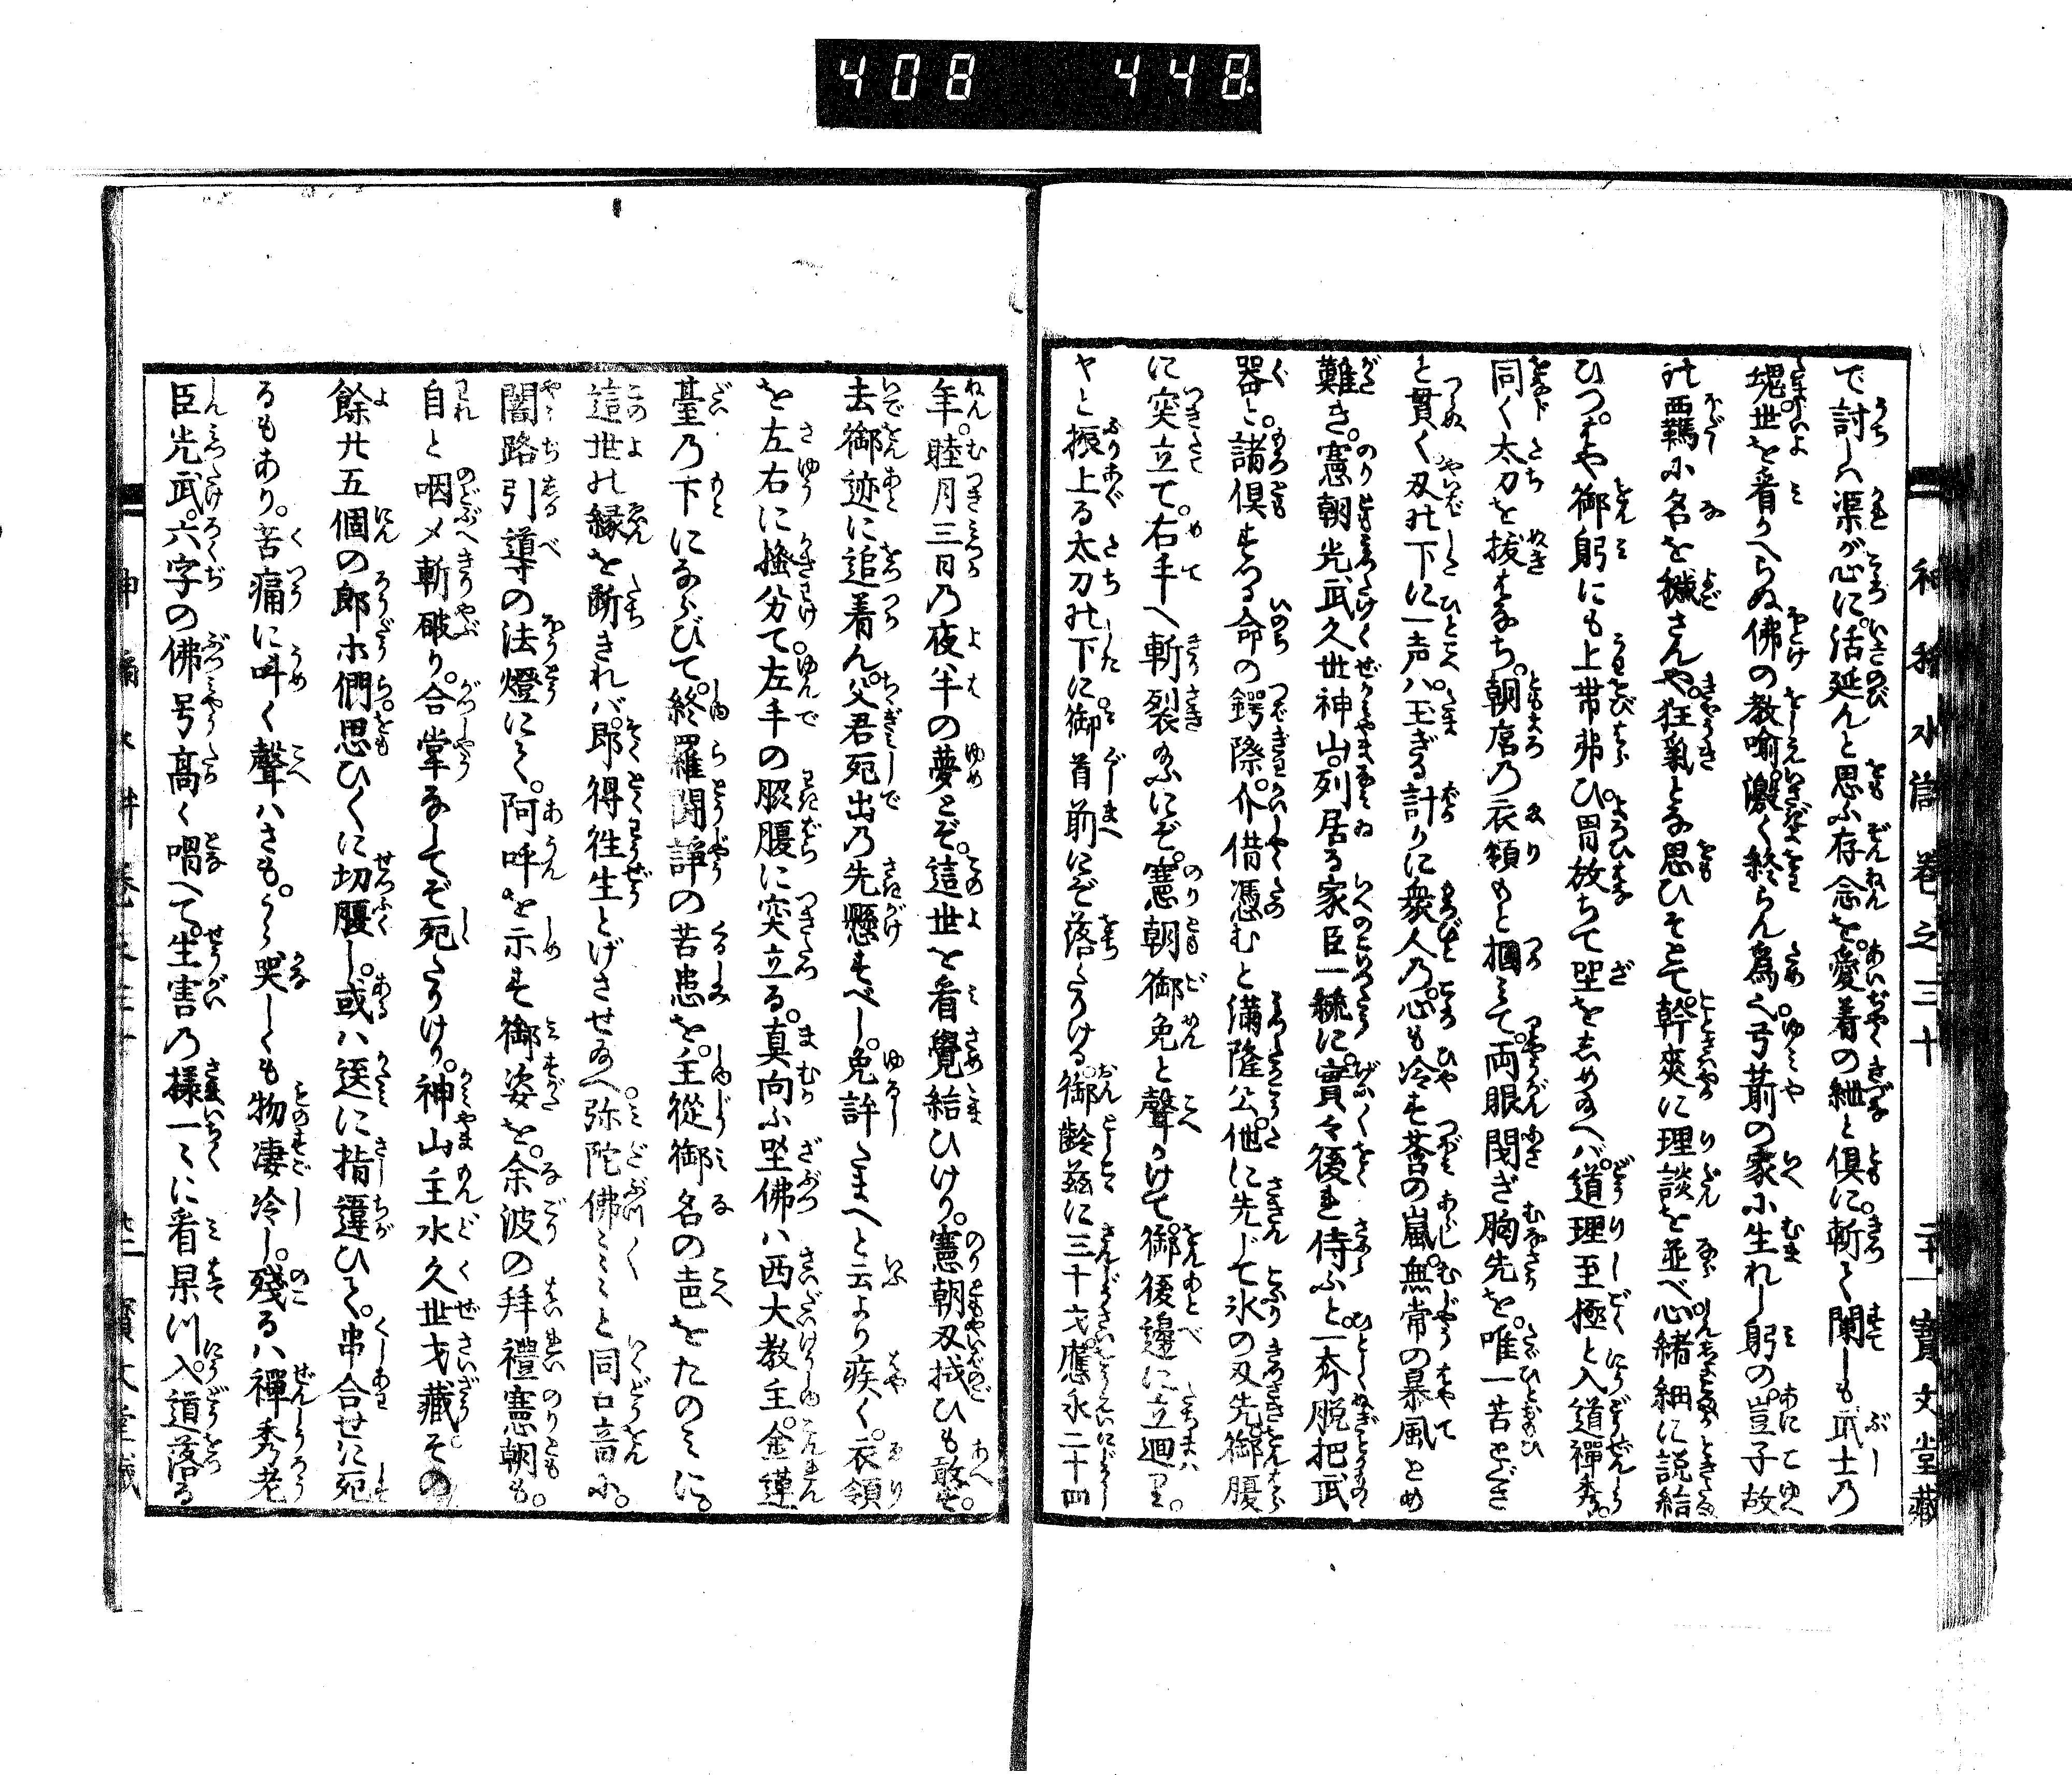 408 448
神稲水滸傳 巻之三十 二十一 寳文堂藏
で討しハ渠が心に。活延んと思ふ存念を。愛着の紲と倶に。斬て闌しも武士の
塊。世を看かへらぬ佛の教喩。激く終らん為く。弓箭の家に生れし躬の。豈子故
の羈に名を穢さんや。狂氣とな思ひそとて。幹爽に理談を並べ。心緒細に説結
ひつ。はや御躬にも上帯弗ひ。冑放ちて坐をしめ給へバ。道理至極と入道禪秀。
同く太刀を抜はなち。朝房の衣領もと摑みて。両眼閉ぎ胸先を。唯一苦とぐさ
と貫く刄の下に一声ハ。玉ぎる計りに衆人の。心も冷す莟の嵐。無常の暴風とめ
難き。憲朝光武久世神山。列居る家臣一統に。實々後れ侍ふと。一齊脱把武
器と。諸倶する命の鍔際。介借憑むと満隆公。他に先じて氷の刄先。御腹
に突立て。右手へ斬裂給ふにぞ。憲朝御免と聲かけて。御後邊に立廻り。
やと振上る太刀の下に。御首前にぞ落たりける。御齢茲に三十才。應永二十四
年。睦月三日の夜半の夢とぞ。這世を看覺給ひけり。憲朝刄拭ひも敢ず。
去御迹に追着ん。父君死出の先懸すべし。免許たまへと云より疾く。衣領
を左右に掻分て。左手の脇腹に突立る。真向に坐佛ハ西大教主。金蓮
臺の下にならびて。終羅闘諍の苦患を。主從御名の声をたのミに。
這世の縁を断きれバ。即得徃生とげさせ給へ。弥陀佛ミミと同口音に。
闇路引導の法燈にて。阿吽を示す御姿を。余波の拜禮憲朝も。
自と咽〆斬破り。合掌なしてぞ死たりけり。神山主水久世才藏。その
餘廿五個の郎等們。思ひ〱に切腹し。或ハ送に指違ひて。串合せに死
るもあり。苦痛に呌く聲ハさも。うら哭しくも物凄冷し。殘るハ禪秀老
臣光武。六字の佛号高く唱へて。生害の様一々に看早川。入道落る